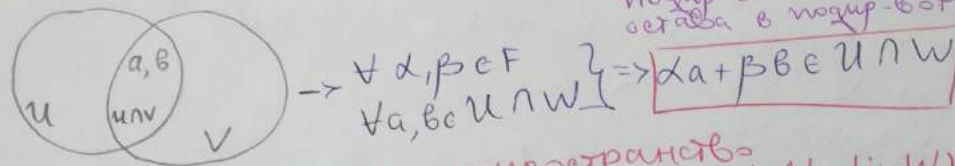 остава в подпр-вот
a, в
U
U∩V
V
→ ∀ α, β ∈ F
∀a, в ∈ U ∩ W } => αa + βв ∈ U ∩ W
пространство